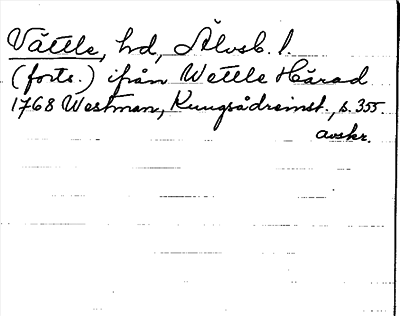 Vättle, hd, Älvsb. l.
(forts.) ifrån Wettle Härad
1768 Westman, Kungsådreinst., s. 355.
avskr.